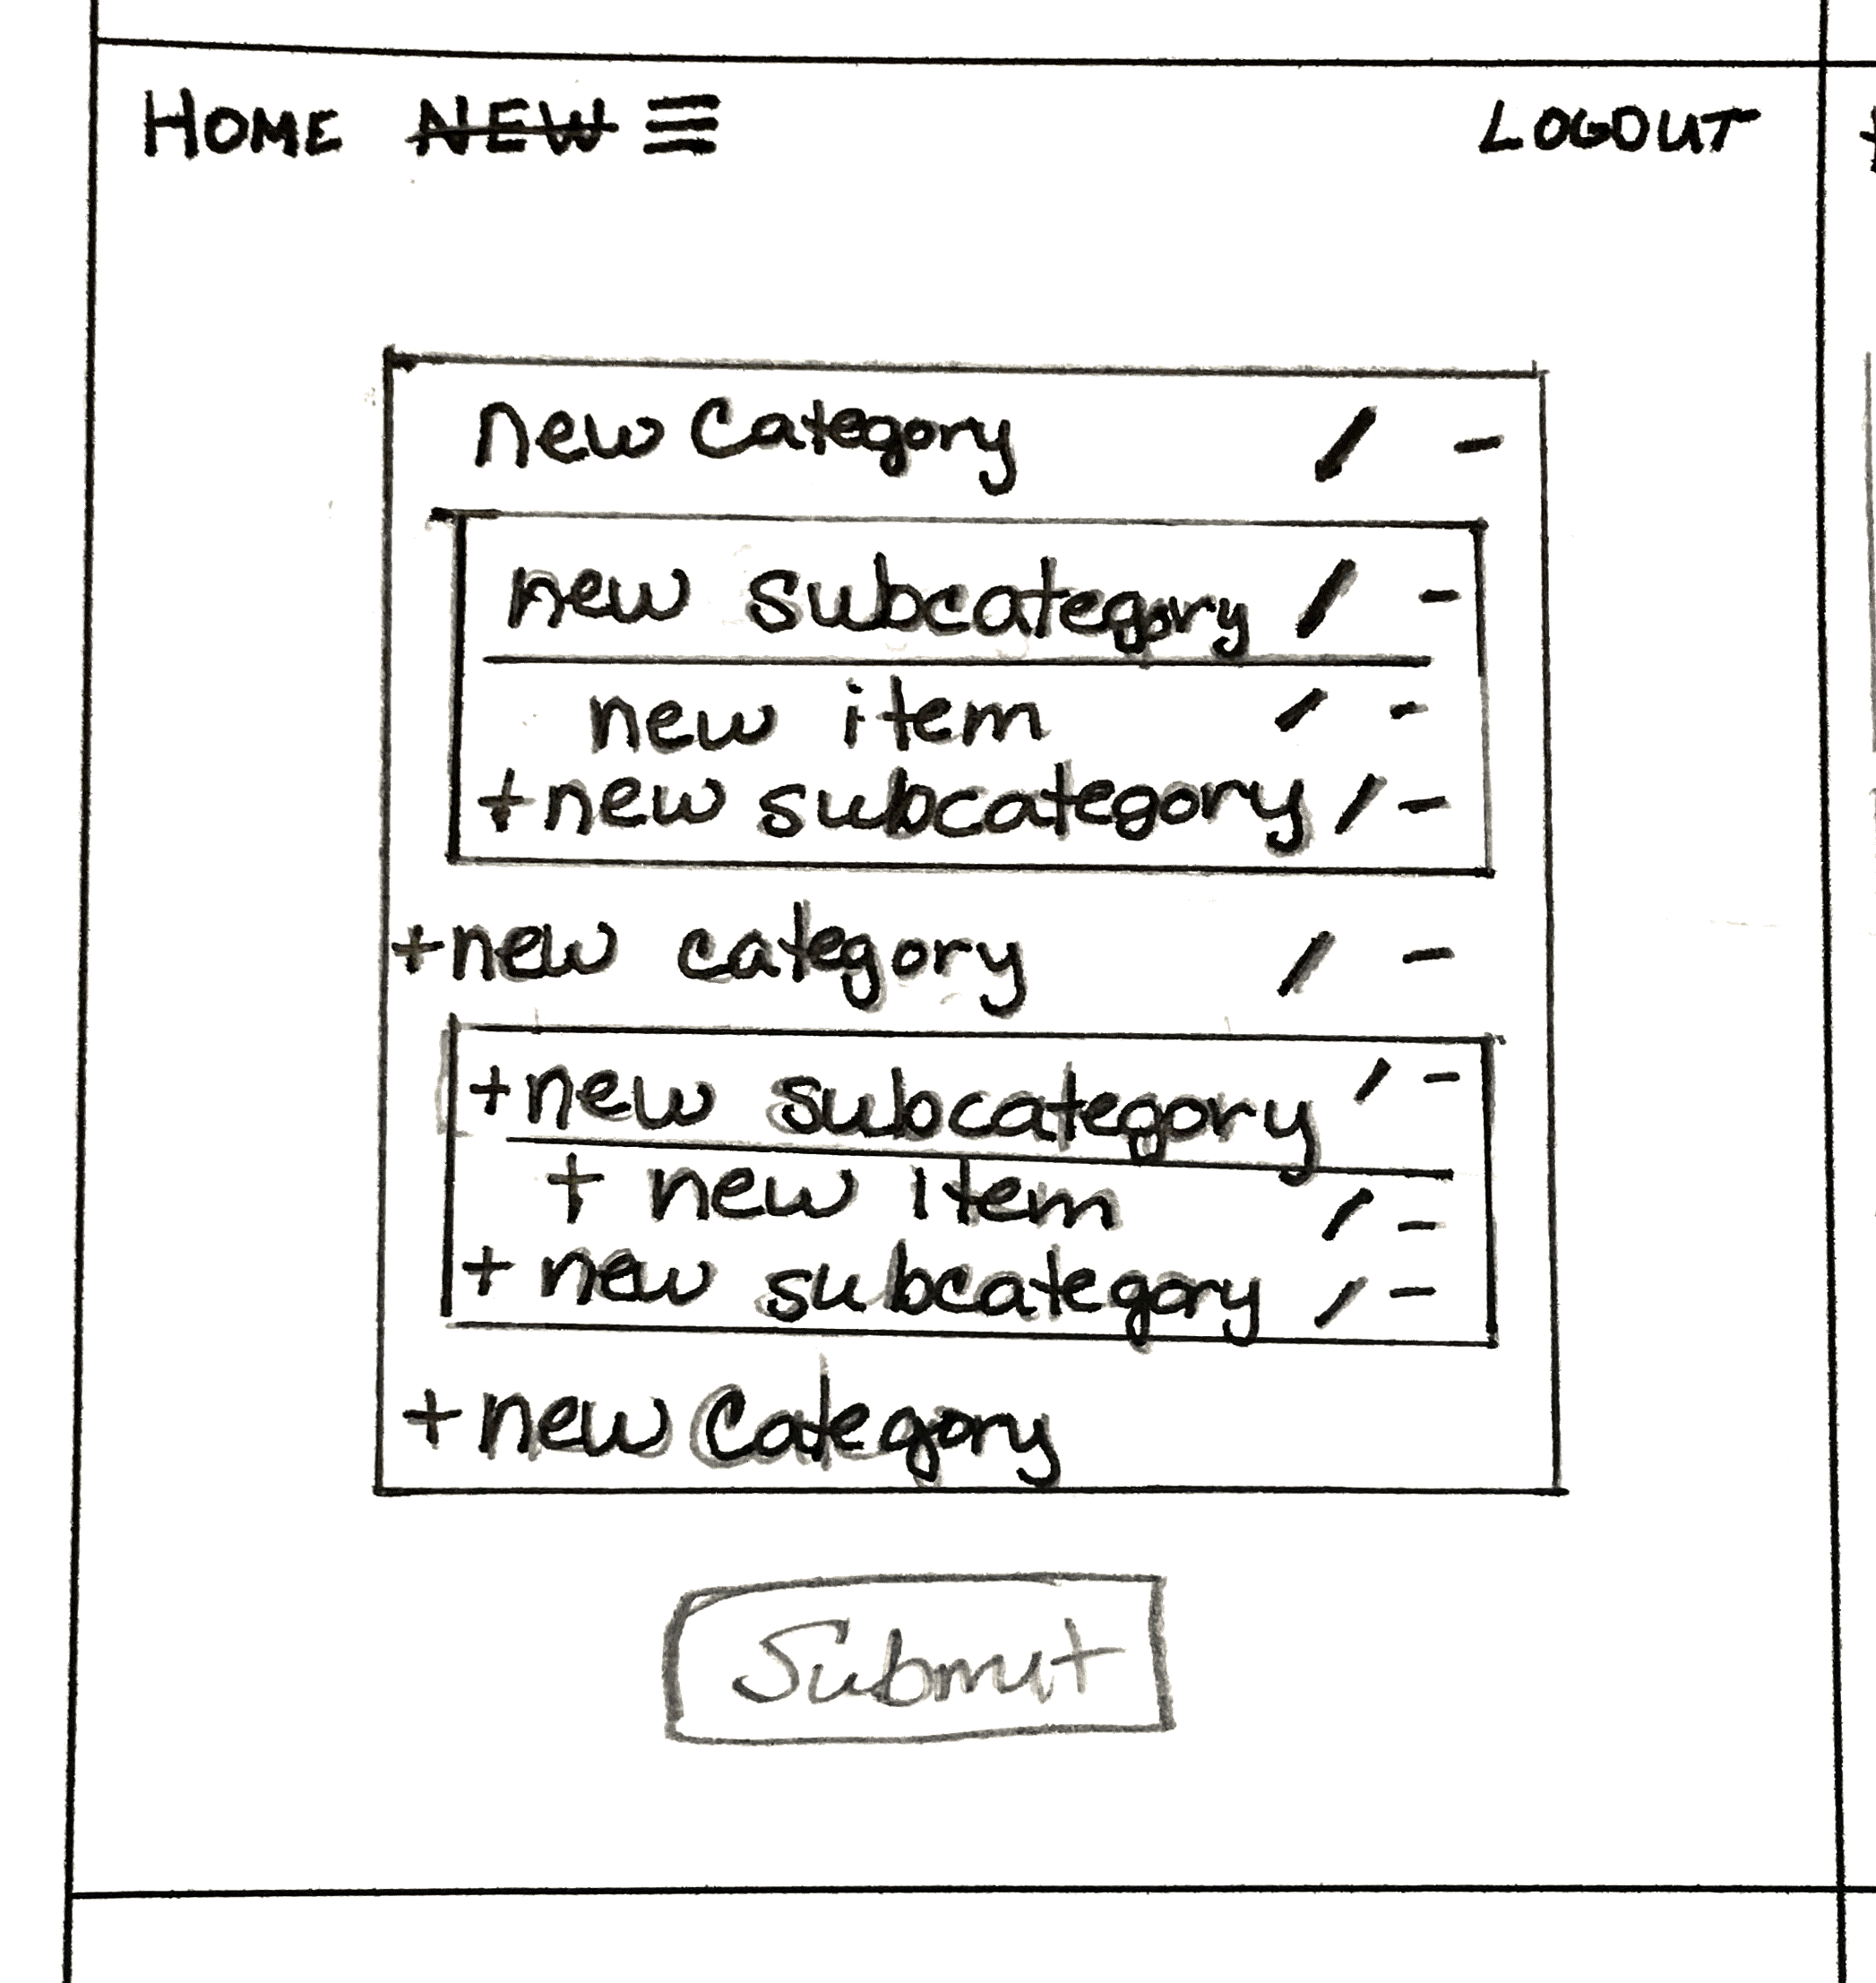 HOME NEW LOGOUT
new Category / -
new subcategory / -
new item / -
+new subcategory / -
+new category / -
+new subcategory / -
+ new item / -
+ new subcategory / -
+new Category
Submit